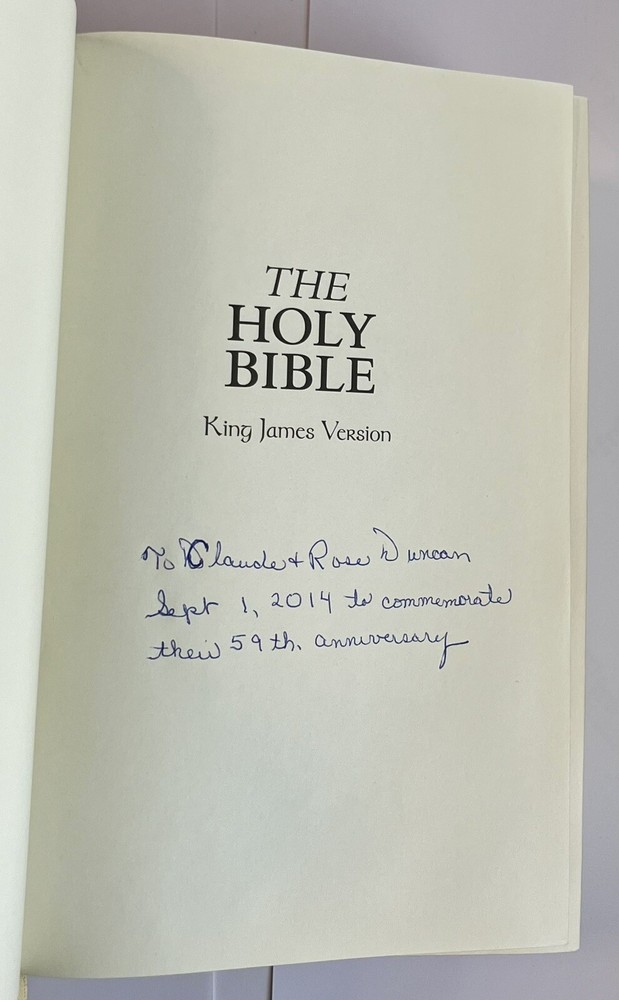 THE
HOLY
BIBLE
King James Version
To Claude + Rose Duncan
Sept 1, 2014 to commemorate
their 59th. anniversary